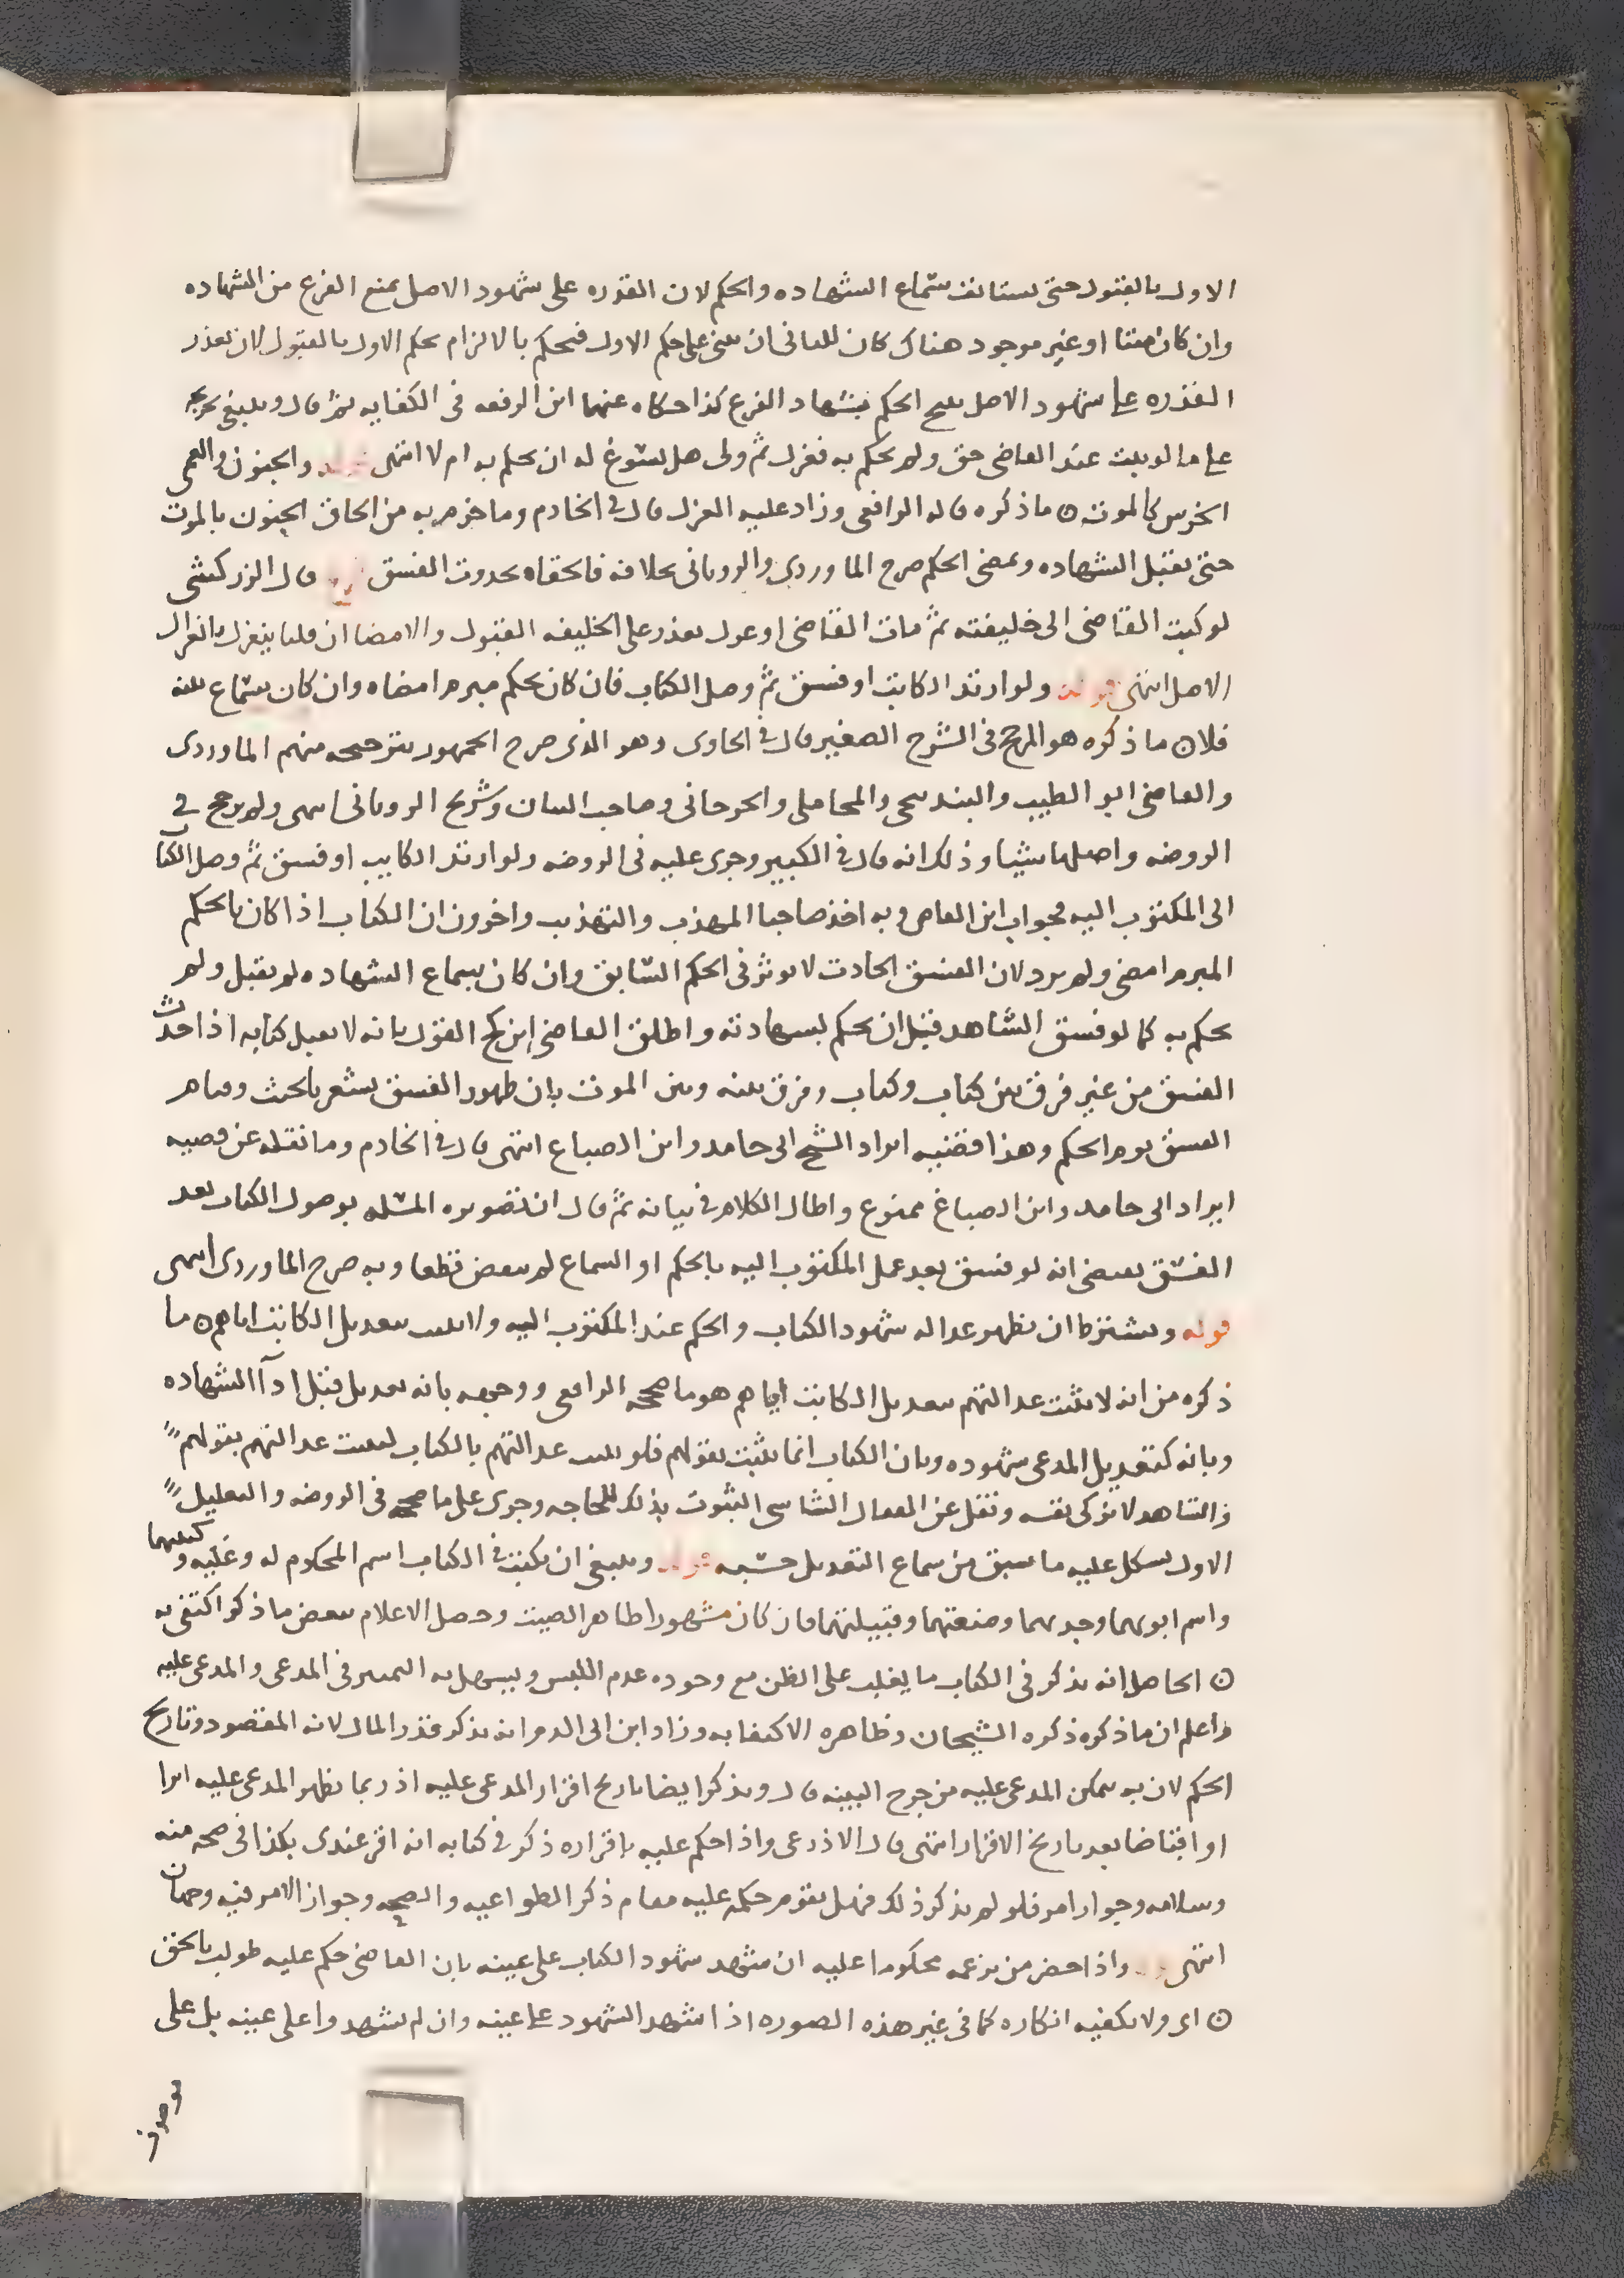 الاول بالقبول حتى يستانف سماع الشهاده والحكم لان القدره على شهود الاصل يمنع الفرع من الشهاده
وان كان ميتا او غير موجود هناك كان للثانى ان يبنى على حكم الاول فيحكم بالالزام بحكم الاول بالقبول لان تعذر
القدره على شهود الاصل يبيح الحكم بشهاد الفرع كذا حكاه عنهما ابن الرفعه فى الكفايه ثم قال وينبغى تخريجه
على ما لو ثبت عند القاضى حق ولم يحكم به فعزل ثم ولى هل يسوغ له ان يحكم به ام لا انتهى قوله والجنون والعمى
الخرس كالموت ۞ ما ذكره قاله الرافعى وزاد عليه العزل قال فى الخادم وما جزم به من الحاق الجنون بالموت
حتى تقبل الشهاده ويمضى الحكم صرح الماوردى والرويانى بخلافه فالحقاه بحدوث الفسق فرع قال الزركشى
لو كتب القاضى الى خليفته ثم مات القاضى او عزل تعذر على الخليفه القبول والامضا ان قلنا ينعزل بانعزال
الاصل انتهى قوله ولو ارتد الكاتب او فسق ثم وصل الكتاب فان كان بحكم مبرم امضاه وان كان بسماع بينه
فلا ۞ ما ذكره هو المرجح فى الشرح الصغير قال فى الحاوى وهو الذى صرح الجمهور بترجيحه منهم الماوردى
والقاضى ابو الطيب والبندنيجى والمحاملى والجرجانى وصاحب البيان وشريح الرويانى انتهى ولم يرجح فى
الروضه واصلها شيا وذلك انه قال فى الكبير وجرى عليه فى الروضه ولو ارتد الكاتب او فسق ثم وصل الكتاب
الى المكتوب اليه فجواب ابن القاص وبه اخذ صاحبا المهذب والتهذيب واخرون ان الكتاب اذا كان بالحكم
المبرم امضى ولم يرد لان الفسق الحادث لا يوثر فى الحكم السابق وان كان بسماع الشهاده لم يقبل ولم
يحكم به كما لو فسق الشاهد قبل ان يحكم بشهادته واطلق القاضى ابن كج القول بانه لا يقبل كتابه اذا حدث
الفسق من غير فرق بين كتاب وكتاب وفرق بينه وبين الموت بان ظهور الفسق يشعر بالخبث وقيام
الفسق يوم الحكم وهذا قضيه ايراد الشيخ ابى حامد وابن الصباغ انتهى قال فى الخادم وما نقله عن قضيه
ايراد ابى حامد وابن الصباغ ممنوع واطال الكلام فى بيانه ثم قال ان تصويره المسله بوصول الكتاب بعد
الفسق يقتضى انه لو فسق بعد عمل المكتوب اليه بالحكم او السماع لم ينقض قطعا وبه صرح الماوردى انتهى
قوله ويشترط ان يظهر عداله شهود الكتاب والحكم عند المكتوب اليه ولا يثبت بتعديل الكاتب اياهم ۞ ما
ذكره من انه لا يثبت عدالتهم بتعديل الكاتب اياهم هو ما صححه الرافعى ووجهه بانه تعديل قبل ادآ الشهاده
وبانه كتعديل المدعى شهوده وبان الكتاب انما يثبت بقولهم فلو ثبت عدالتهم بالكتاب لثبتت عدالتهم بقولهم
والشاهد لا يزكى نفسه ونقل عن القفال الشاشى الثبوت بذلك للحاجه وجرى على ما صححه فى الروضه والتعليل
الاول يشكل عليه ما سبق من سماع التعديل حسبه قوله وينبغى ان يكتب فى الكتاب اسم المحكوم له وعليه وكنيتهما
واسم ابويهما وجديهما وصنعتهما وقبيلتهما فان كان مشهورا ظاهر الصيت وحصل الاعلام ببعض ما ذكر اكتفى به
۞ الحاصل انه يذكر فى الكتاب ما يغلب على الظن مع وجوده عدم اللبس ويسهل به التمييز فى المدعى والمدعى عليه
واعلم ان ما ذكره ذكره الشيخان وظاهره الاكتفا به وزاد ابن ابى الدم انه يذكر قدر المال لانه المقصود وتاريخ
الحكم لان به يتمكن المدعى عليه من جرح البينه قال ويذكر ايضا تاريخ اقرار المدعى عليه اذ ربما يظهر المدعى عليه ابرا
او اقباضا بعد تاريخ الاقرار انتهى قال الاذرعى واذا حكم عليه باقراره ذكر فى كتابه انه اقر عندى بكذا فى صحه منه
وسلامه وجواز امر فلو لم يذكر ذلك فهل يقوم حكمه عليه مقام ذكر الطواعيه والصحه وجواز الامر فيه وجهان
انتهى قوله واذا احضر من يزعمه محكوما عليه ان شهد شهود الكتاب على عينه بان القاضى حكم عليه طولب بالحق
۞ اى ولا يكفيه انكاره كما فى غير هذه الصوره اذا شهد الشهود على عينه وان لم يشهدوا على عينه بل على
موصوف